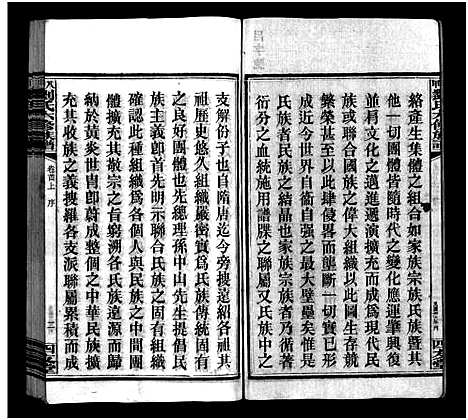 絡產生集體之組合如家族宗族氏族暨其
他一切團體皆隨時代之變化應運肇興復
並肩文化之邁進遞演擴充而成為現代民
族或聯合國族之偉大組織以此圖生存競
繁榮甚至以此肆侵畧而禦強暴民族團結
成近今世界和平之最大壁壘矣尙實
氏族者民族之結晶也家族宗族者乃循著
衍分之血統施用譜牒之聯屬又氏族中之
支解份子也自隋唐迄今旁搜遠紹各祖其
祖歷史悠久組織嚴密實為氏族傳統固有
之良好團體也先總理孫中山先生提倡民
族主義卽首先明示聯合氏族之固有組織
確認此種組織為各個人與民族之中間團
體擴充其敬宗之者窮溯各氏族遠源而歸
納於黃炎世冑卽蔚成整個之中華民族擴
充其收族之義搜羅各支派聯屬累積而成
劉氏六修族譜
卷首上 序